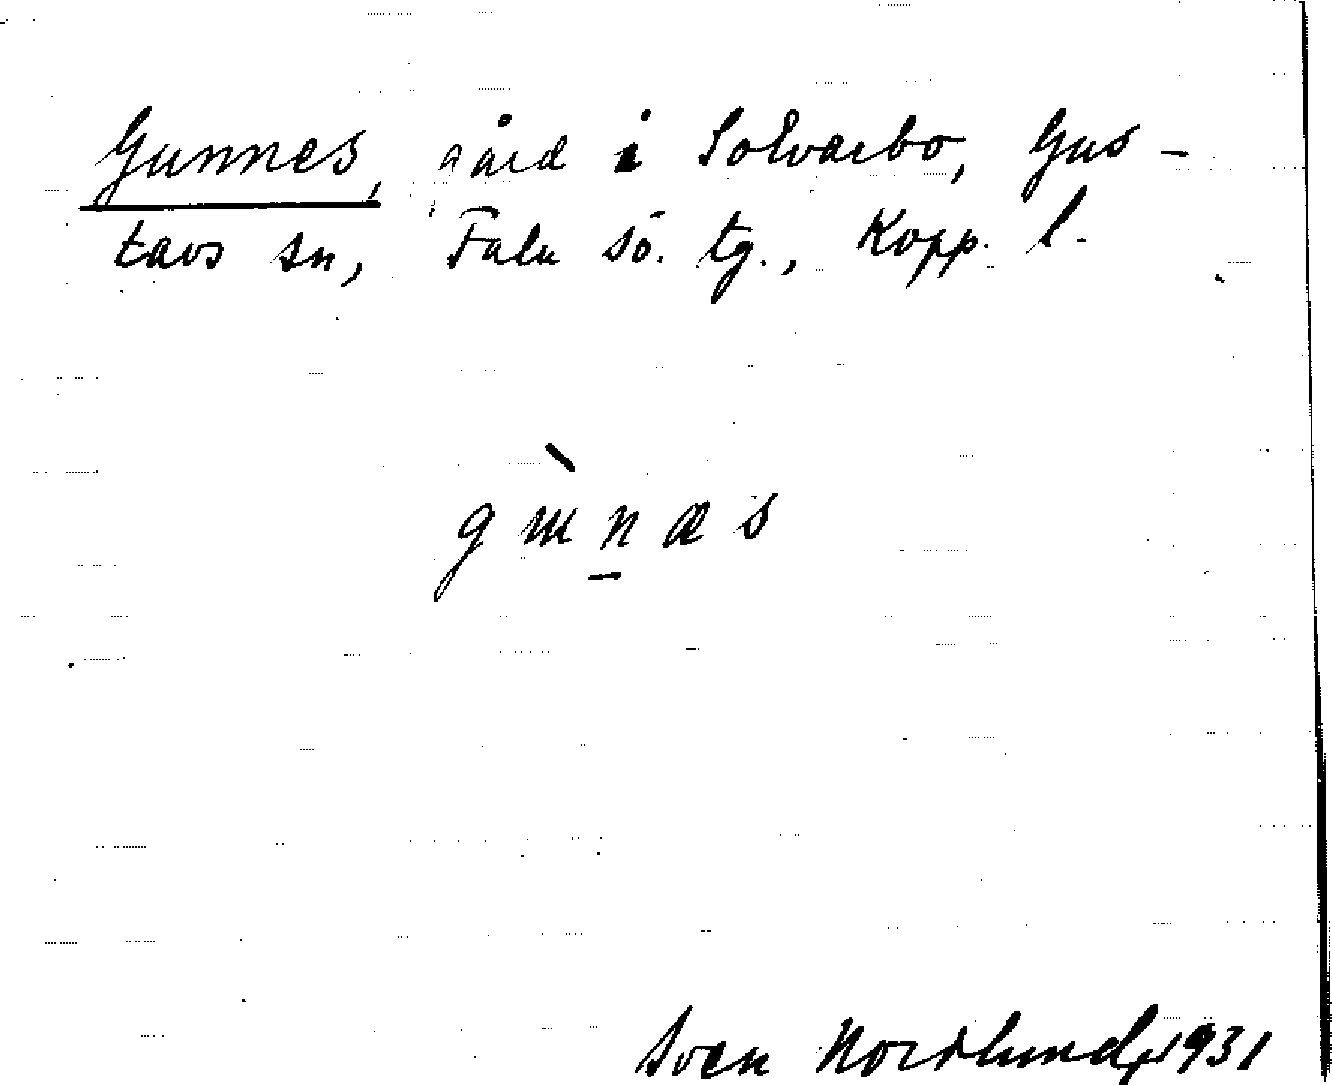 Gunnes, gård i Solvarbo, Gus-
tavs sn, Falu sö. tg., Kopp. l.
gɯ̀n̠æs
Sven Nordlund, 1931